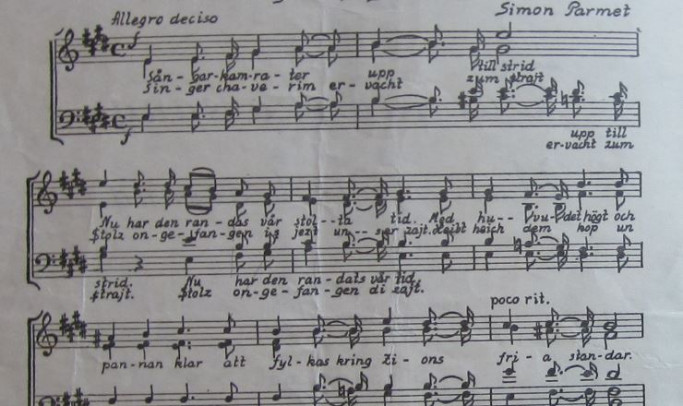 Simon Parmet
Allegro deciso
f
Sån-gar-kam-ra-ter upp till strid
Sin-ger cha-ve-rim er-vacht zum $trajt
f
upp till
er-vacht zum
Nu har den ran-das vår stol--ta tid. Med hu-- vu-det högt och
$tolz on-ge-fan-gen is jezt un--ser zajt. heich dem kop un
strid. Nu har den ran-dats vår tid,
$trajt. $tolz on-ge-fan-gen di zajt.
poco rit.
pan-nan klar att fyl-kas kring Zi-ons fri-a stan-dar.